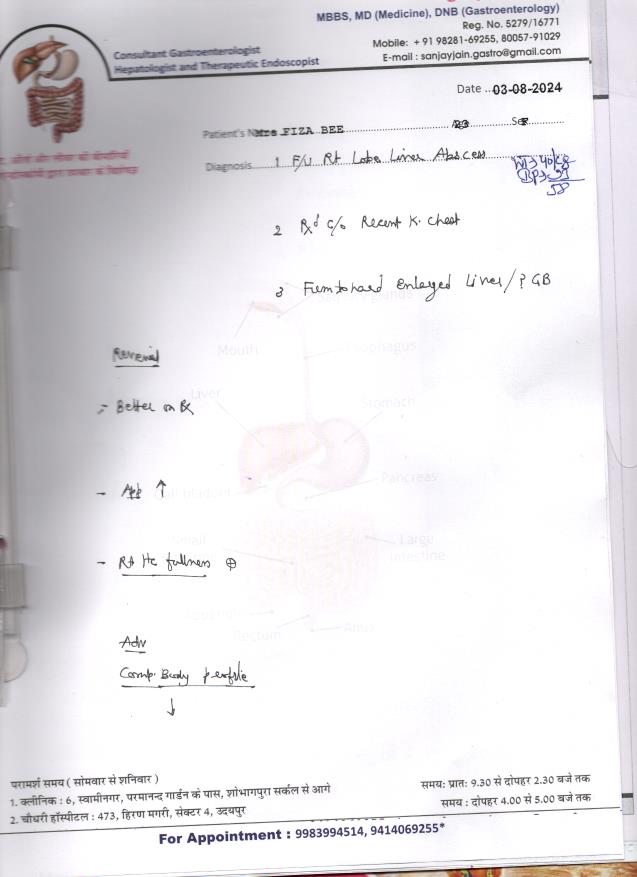 MBBS, MD (Medicine), DNB (Gastroenterology)
Reg. No. 5279/16771
Consultant Gastroenterologist
Hepatologist and Therapeutic Endoscopist
Mobile: + 91 98281-69255, 80057-91029
E-mail : sanjayjain.gastro@gmail.com
Date ...03-08-2024
Patient's N Mrs FIZA BEE 23 Se F
Diagnosis 1 F/U Rt Lobe Liver Abscess
Wt 40kg
BP
58
2 Rx'd c/o Recent K. Chest
3 Firm to hard Enlarged Liver / ? GB
Mouth
Esophagus
Review
Liver
- Better on Rx
Stomach
Pancreas
- App ↑
Gall bladder
Small
Large
intestine
- Rt Hc fullness ⊕
Appendix
Rectum
Anus
Adv
Comp. Body profile
↓
परामर्श समय ( सोमवार से शनिवार )
1. क्लीनिक : 6, स्वामीनगर, परमानन्द गार्डन के पास, शोभागपुरा सर्कल से आगे
समय: प्रातः 9.30 से दोपहर 2.30 बजे तक
2. चौधरी हॉस्पीटल : 473, हिरण मगरी, सेक्टर 4, उदयपुर
समय : दोपहर 4.00 से 5.00 बजे तक
For Appointment : 9983994514, 9414069255*